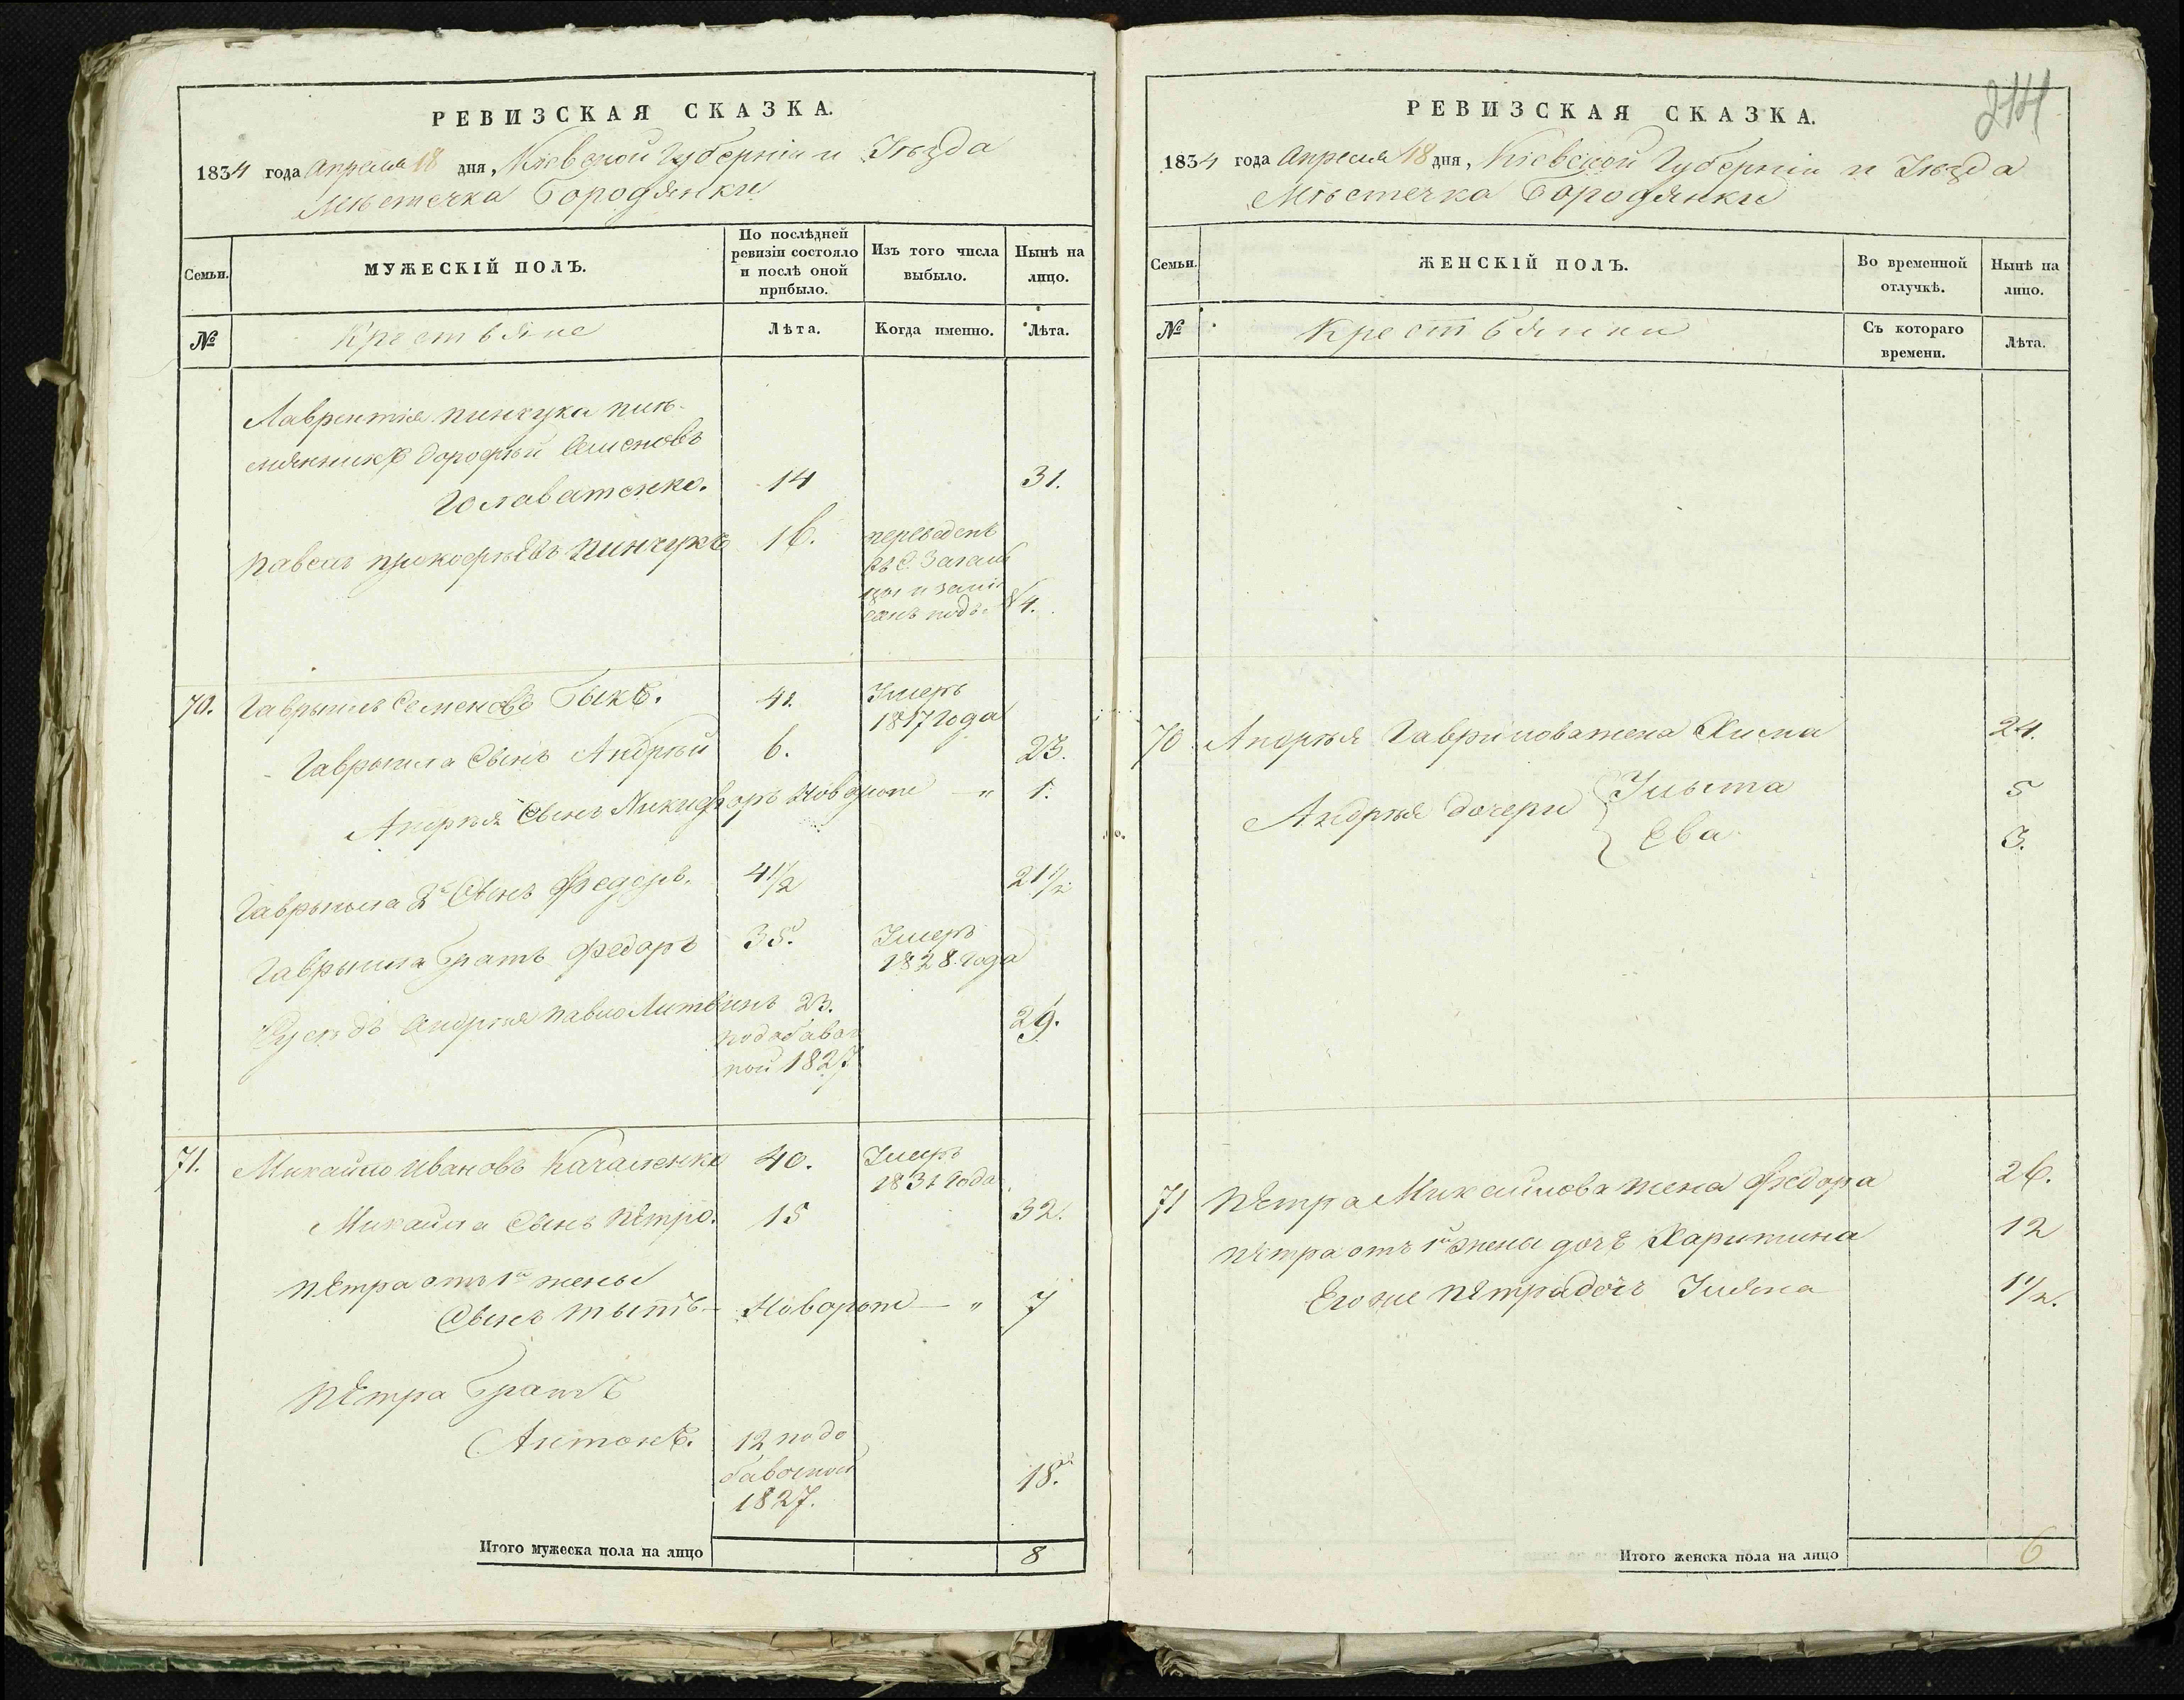 РЕВИЗСКАЯ СКАЗКА.
1834 года Апреля 18 дня, Кіевской Губерніи и Уѣзда
Мѣстечка Бородянки
Семьи.
МУЖЕСКІЙ ПОЛЪ.
По послѣдней ревизіи состояло и послѣ оной прибыло.
Изъ того числа выбыло.
Нынѣ на лицо.
№
Крестьяне
Лѣта.
Когда именно.
Лѣта.
Лаврентія Пинчука пле-
мянникъ Дорофѣй Семеновъ
Головатенко. 14 31.
Павелъ Прокофьевъ Пинчукъ 16. переведенъ
въ С. Загаль
цы и запи
санъ подъ № 4.
70. Гаврыилъ Семеновъ Быкъ. 41. Умеръ
1817 года
Гаврыила Сынъ Андрѣй 6. 23.
Андрѣя Сынъ Никифоръ Новорож — " 1.
Гаврыила 2й Сынъ Федоръ. 4 1/2 21 1/2
Гаврыила Братъ Федоръ 35. Умеръ
1828 года
Андрѣя Павло Литвинъ 23. 29.
по добавоч
ной 1827
71. Михайло Ивановъ Качаленко 40. Умеръ
1831 года
Михайла Сынъ Петро. 15 32.
Петра отъ 1й жены
Сынъ Тытъ — Новорож — " 7
Петра Братъ
Антонъ. 12 по до
бавочной
1827. 18.
Итого мужеска пола на лицо 8
РЕВИЗСКАЯ СКАЗКА.
1834 года Апреля 18 дня, Кіевской Губерніи и Уѣзда
Мѣстечка Бородянки
Семьи.
ЖЕНСКІЙ ПОЛЪ.
Во временной отлучкѣ.
Нынѣ на лицо.
№
Крестьянки
Съ котораго времени.
Лѣта.
70 Андрѣя Гаврилова жена 24.
Андрѣя дочери Ульита 5
Ева 3.
71 Петра Михайлова жена Федора 26.
Петра отъ 1й жены дочь Харитина 12
Его же Петра дочь Уляна 1 1/2.
Итого женска пола на лицо 6